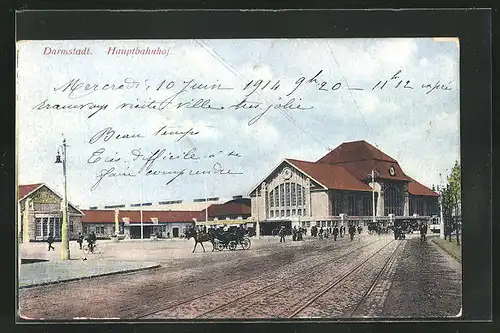 Darmstadt. Hauptbahnhof.
Mercredi 10 Juin 1914 9h20 - 11h12 exprés
tramways visite ville très jolie
Beau temps
très difficile à se
faire comprendre